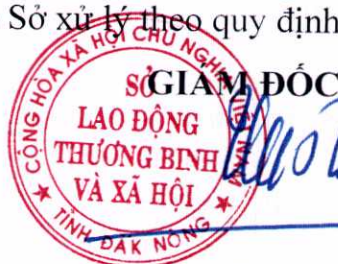 Sở xử lý theo quy định
GIÁM ĐỐC
CỘNG HÒA XÃ HỘI CHỦ NGHĨA VIỆT NAM
SỞ
LAO ĐỘNG
THƯƠNG BINH
VÀ XÃ HỘI
TỈNH ĐẮK NÔNG